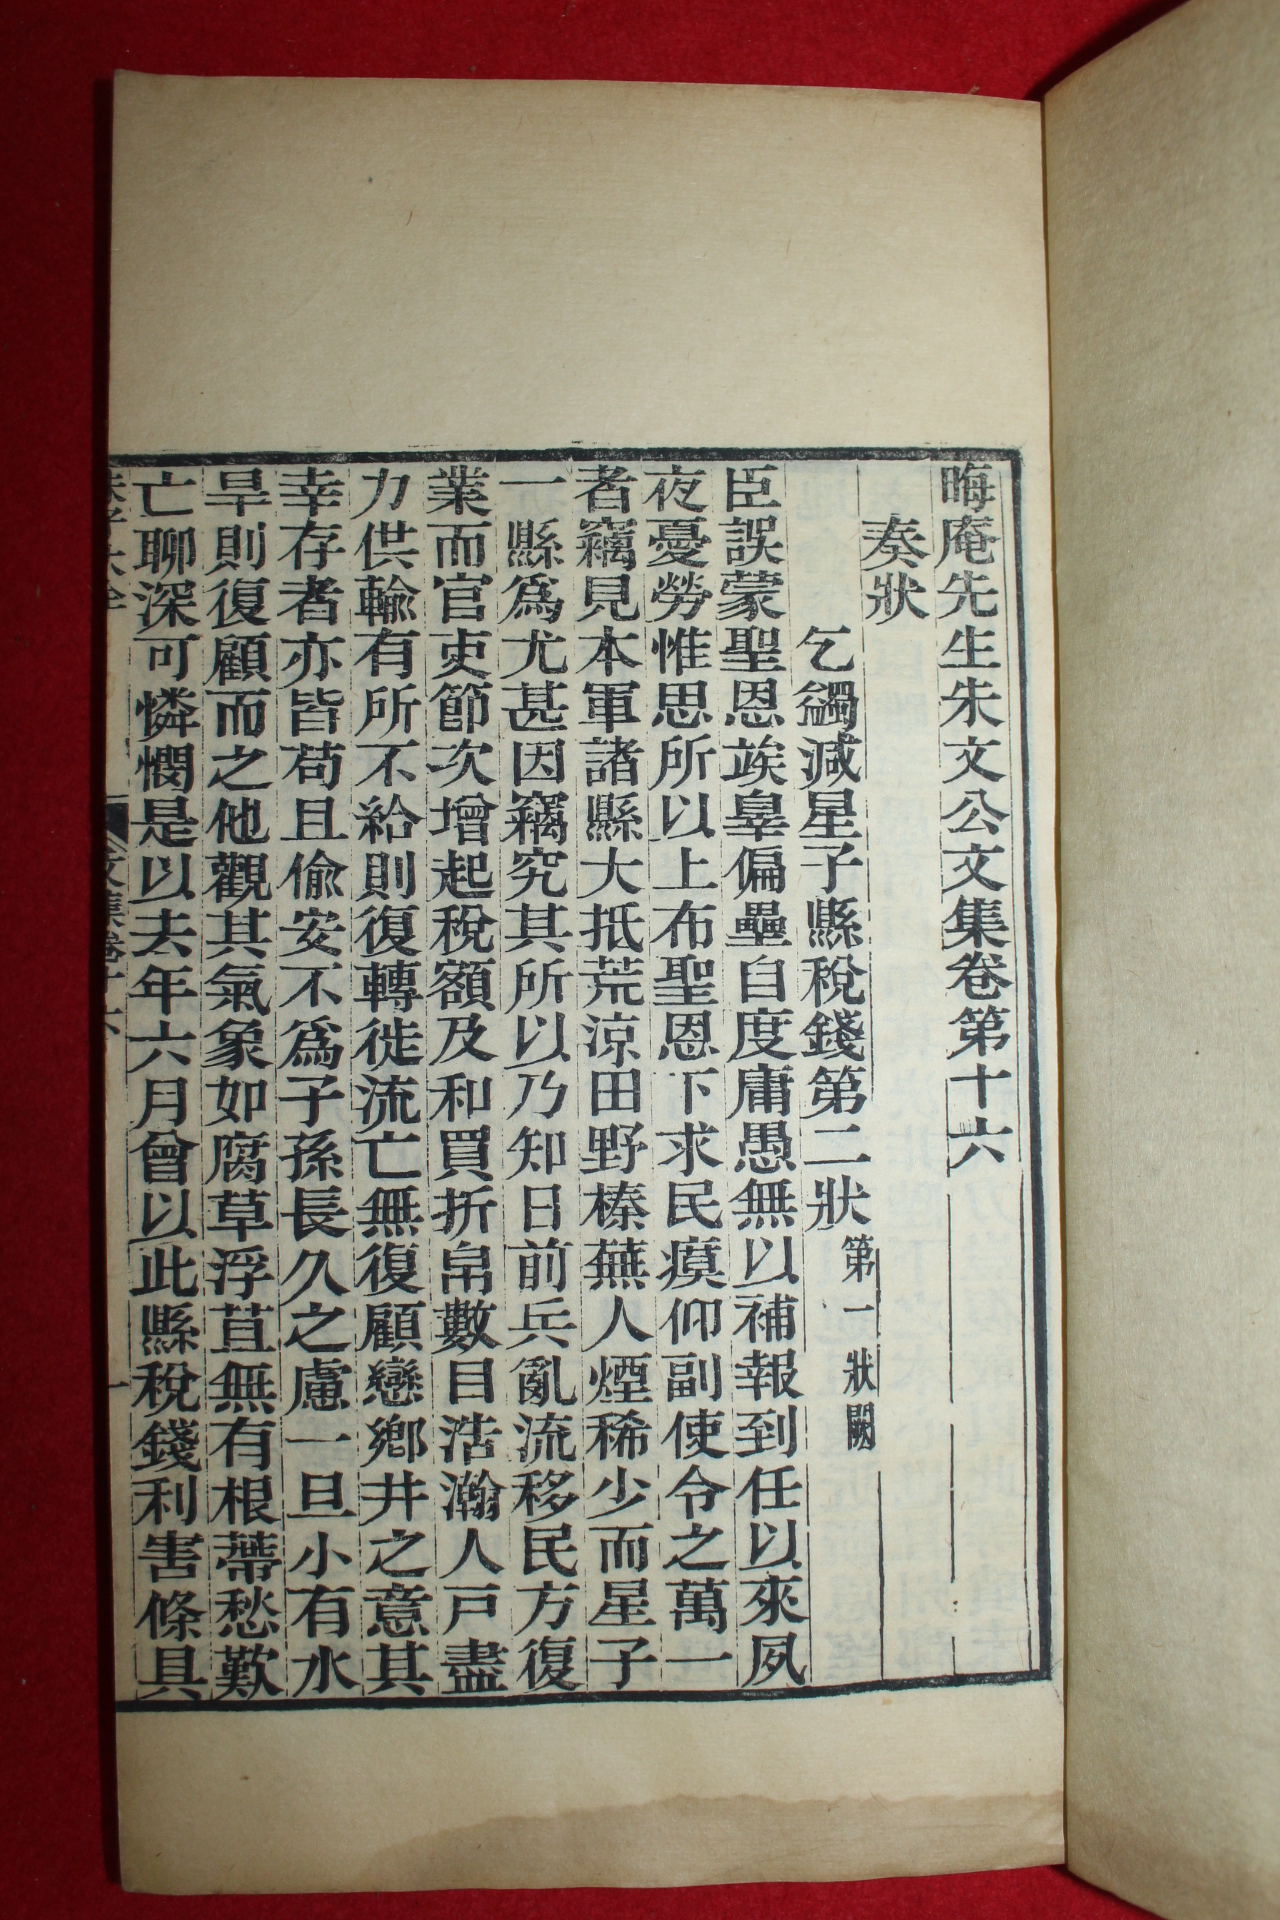 晦庵先生朱文公文集卷第十六
奏狀
乞蠲減星子縣稅錢第二狀 第一狀闕
臣誤蒙聖恩竢辠偏壘自度庸愚無以補報到任以來夙
夜憂勞惟思所以上布聖恩下求民瘼仰副使令之萬一
者竊見本軍諸縣大抵荒涼田野榛蕪人煙稀少而星子
一縣爲尤甚因竊究其所以乃知日前兵亂流移民方復
業而官吏節次增起稅額及和買折帛數目浩瀚人戸盡
力供輸有所不給則復轉徙流亡無復顧戀鄉井之意其
幸存者亦皆苟且偷安不爲子孫長久之慮一旦小有水
旱則復顧而之他觀其氣象如腐草浮苴無有根蔕愁歎
亡聊深可憐憫是以去年六月曾以此縣稅錢利害條具
朱子大全
文集卷十六
一